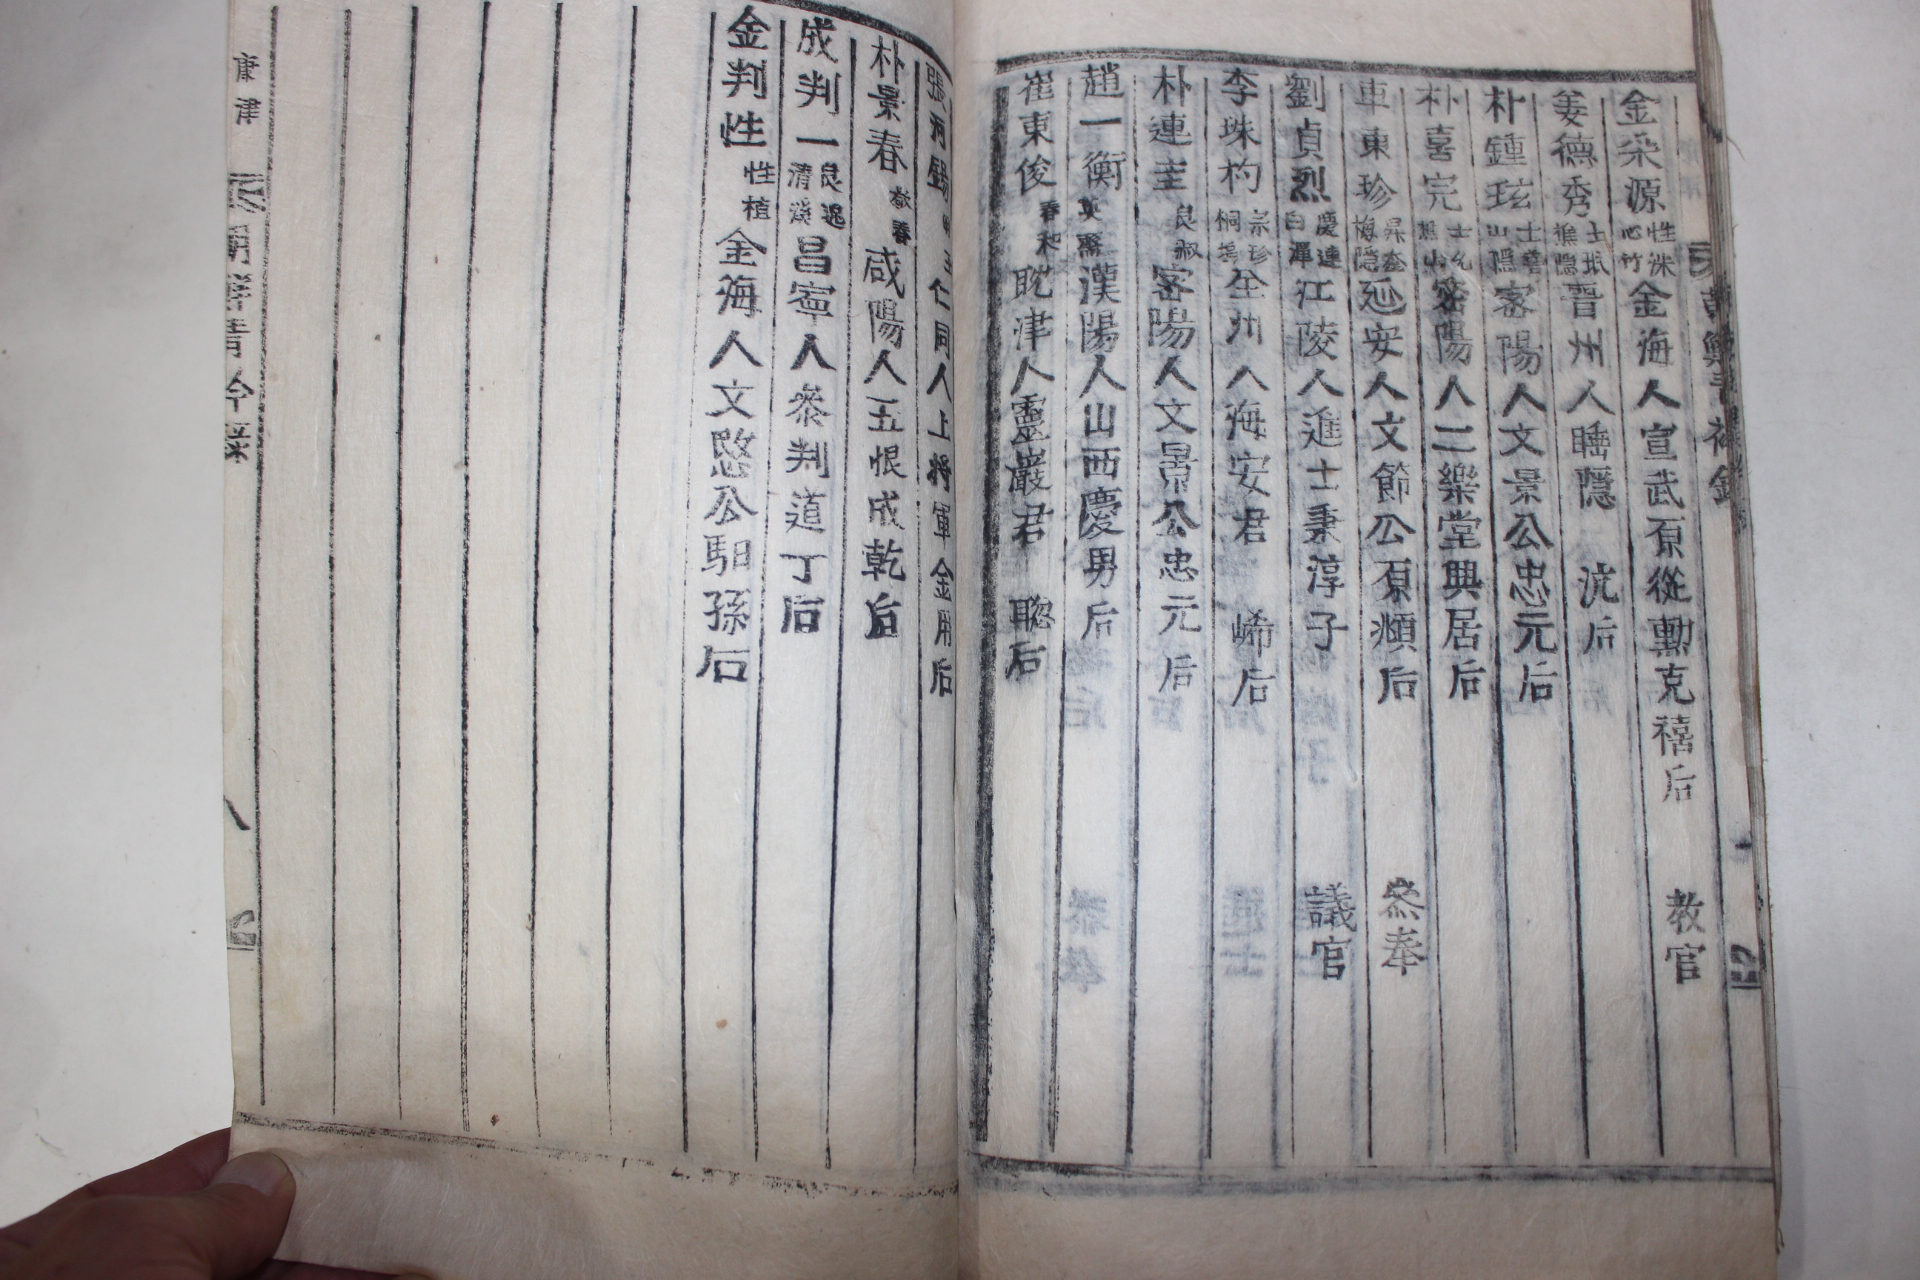 金采源 性洙 心竹 金海人宣武原從勳克禧后 教官
姜德秀 士珉 樵隱 晋州人睡隱 沆后
朴鍾玹 士喜 山隱 密陽人文景公忠元后
朴喜完 士允 山 密陽人二樂堂興居后
車東珍 梅隱 延安人文節公原頫后 叅奉
劉貞烈 慶連 白潭 江陵人進士秉淳子 議官
李珠杓 宗珍 桐 全州人海安君 㟓后
朴連圭 良淑 密陽人文景公忠元后
趙一衡 漢陽人山西慶男后
崔東俊 春和 耽津人靈巖君 聰后
張河錫 仁同人上將軍金用后
朴景春 敬春 咸陽人五恨成乾后
成判一 良選 清溪 昌寧人叅判道丁后
金判性 性植 金海人文愍公馹孫后
康津
朝鮮青衿錄
八